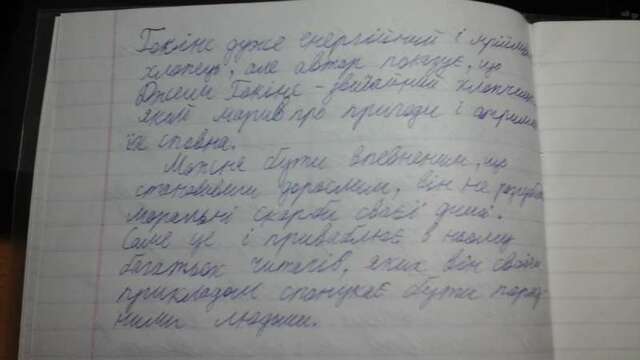 Гокінс дуже енергійний і мрійли
хлопець, але автор показує, що
Джим Гокінс - звичайний хлопчик,
який марив про пригоди і отрима
їх сповна.
Можна бути впевненим, що
становивши дорослим, він не розгуби
моральні скарби своєї душі.
Саме це і приваблює в ньому
багатьох читачів, яких він своїм
прикладом спонукає бути поряд-
ними людьми.